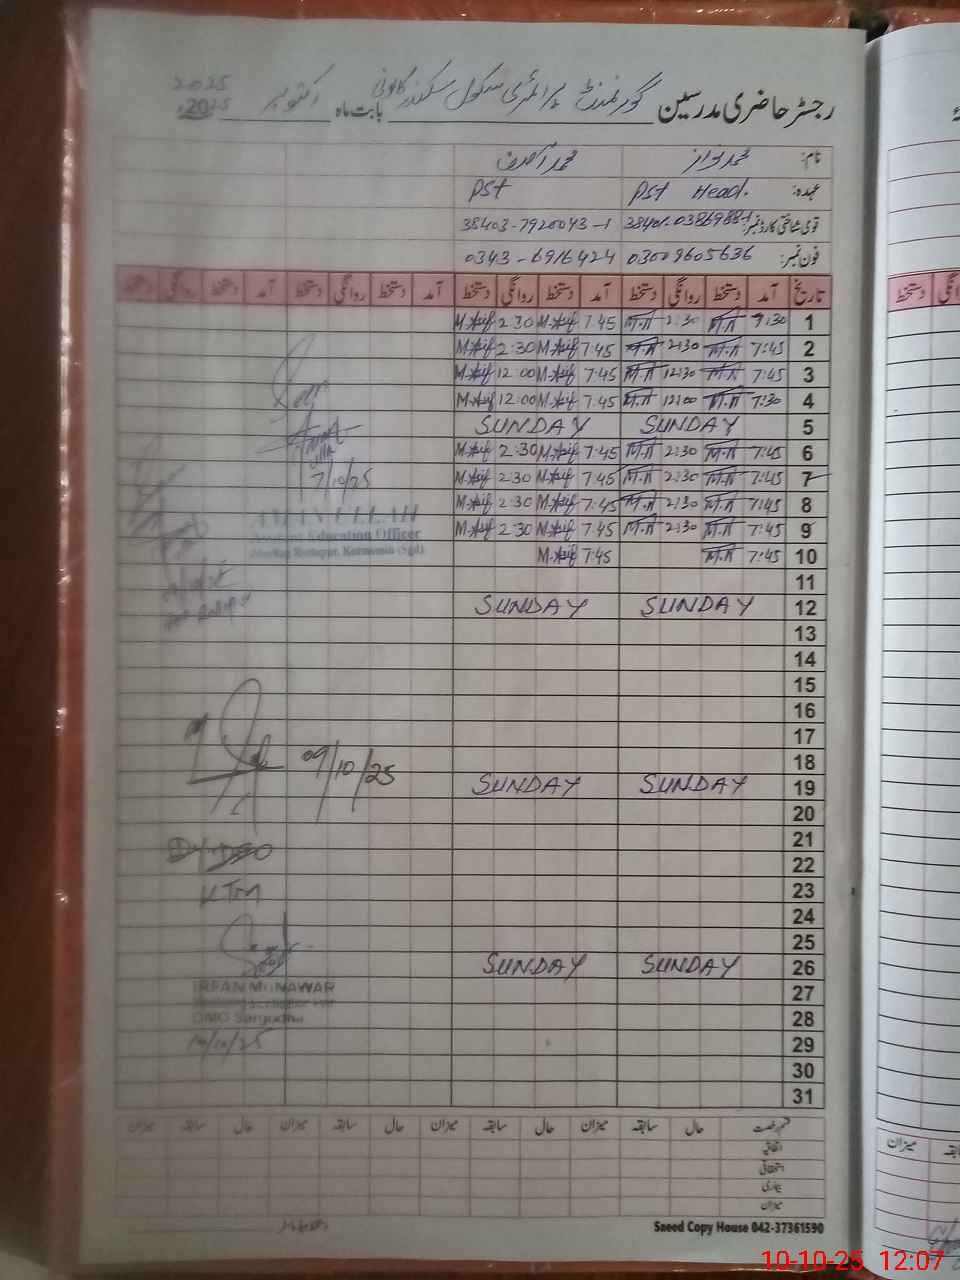 رجسٹر حاضری مدرسین گورنمنٹ پرائمری سکول سکندر کالونی بابت ماہ اکتوبر 2025
2025
نام: محمد نواز محمد آصف
عہدہ: Pst Head. Pst
قومی شناختی کارڈ نمبر: 38403-7920043-1
فون نمبر: 03009605636 0343-6916424
تاریخ آمد دستخط روانگی دستخط آمد دستخط روانگی دستخط آمد دستخط روانگی دستخط آمد دستخط روانگی دستخط
1 7:30 M.N 2:30 M.N 7:45 M.Asif 2:30 M.Asif
2 7:45 M.N 12:30 M.N 7:45 M.Asif 2:30 M.Asif
3 7:45 M.N 12:30 M.N 7:45 M.Asif 12:00 M.Asif
4 7:30 M.N 12:00 M.N 7:45 M.Asif 12:00 M.Asif
5 SUNDAY SUNDAY
6 7:45 M.N 2:30 M.N 7:45 M.Asif 2:30 M.Asif
7 7:45 M.N 2:30 M.N 7:45 M.Asif 2:30 M.Asif
7/10/25
8 7:45 M.N 2:30 M.N 7:45 M.Asif 2:30 M.Asif
AMAN ULLAH
9 7:45 M.N 2:30 M.N 7:45 M.Asif 2:30 M.Asif
Education Officer
10 7:45 M.N 7:45 M.Asif
11
12 SUNDAY SUNDAY
13
14
15
16
17
18
09/10/25
19 SUNDAY SUNDAY
20
21
22
23
24
25
26 SUNDAY SUNDAY
27
IRFAN MUNAWAR
28
DMO Sargodha
29
10/10/25
30
31
قسم رخصت حال سابقہ میزان حال سابقہ میزان حال سابقہ میزان حال سابقہ میزان
اتفاقیہ
استحقاقی
بیماری
میزان
Saeed Copy House 042-37361590
میزان
10-10-25 12:07